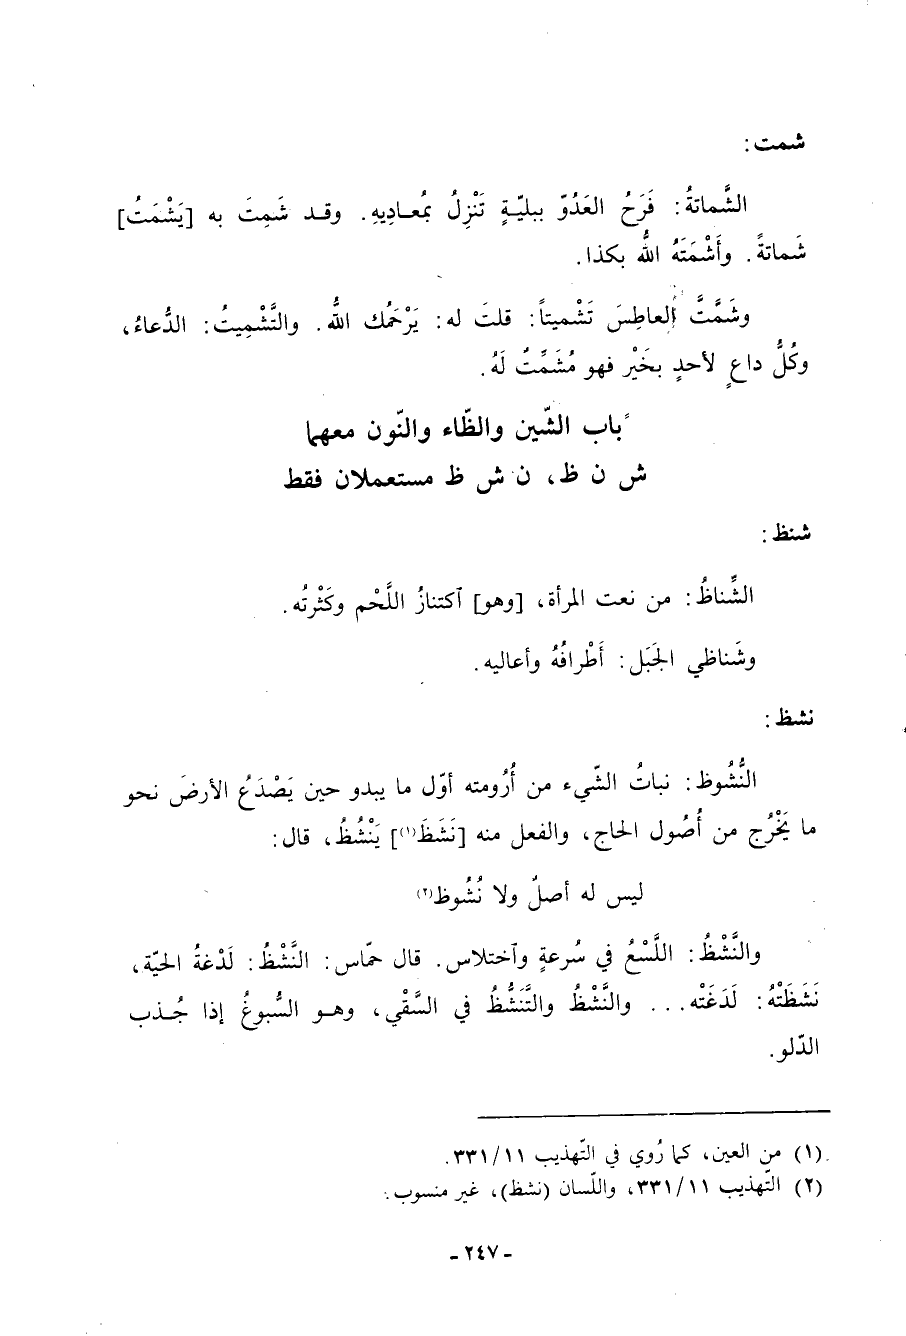 شمت:
الشَّماتةُ: فَرَحُ العَدُوّ ببليّةٍ تَنْزِلُ بمُعاديهِ. وقد شَمِتَ به [يَشْمَتُ]
شَماتةً. وأَشْمَتَهُ اللّٰهُ بكذا.
وشَمَّتَّ العاطِسَ تَشْميتاً: قلتَ له: يَرْحَمُك اللّٰهُ. والتَّشْمِيتُ: الدُّعاءُ،
وكُلُّ داعٍ لأحدٍ بخَيْرٍ فهو مُشَمِّتٌ لَهُ.
باب الشّين والظّاء والنّون معهما
ش ن ظ، ن ش ظ مستعملان فقط
شنظ:
الشِّناظُ: من نعت المرأة، [وهو] ٱكتنازُ اللَّحْم وكَثْرتُه.
وشَناظي الجَبَل: أَطْرافُهُ وأعاليه.
نشظ:
النُّشُوظ: نباتُ الشّيء من أُرُومته أوّل ما يبدو حين يَصْدَعُ الأرضَ نحو
ما يَخْرُج من أُصُول الحاج، والفعل منه [نَشَظَ(١)] يَنْشُظُ، قال:
ليس له أصلٌ ولا نُشُوظ(٢)
والنَّشْظُ: اللَّسْعُ في سُرعةٍ وٱختلاس. قال حمّاس: النَّشْظُ: لَدْغةُ الحيّة،
نَشَظَتْهُ: لَدَغَتْه... والنَّشْظُ والتَّنَشُّظُ في السَّقْي، وهو السُّبوغُ إذا جُذب
الدّلو.
(١) من العين، كما رُوي في التّهذيب ١١/٣٣١.
(٢) التّهذيب ١١/٣٣١، واللّسان (نشظ)، غير منسوب.
- ٢٤٧ -